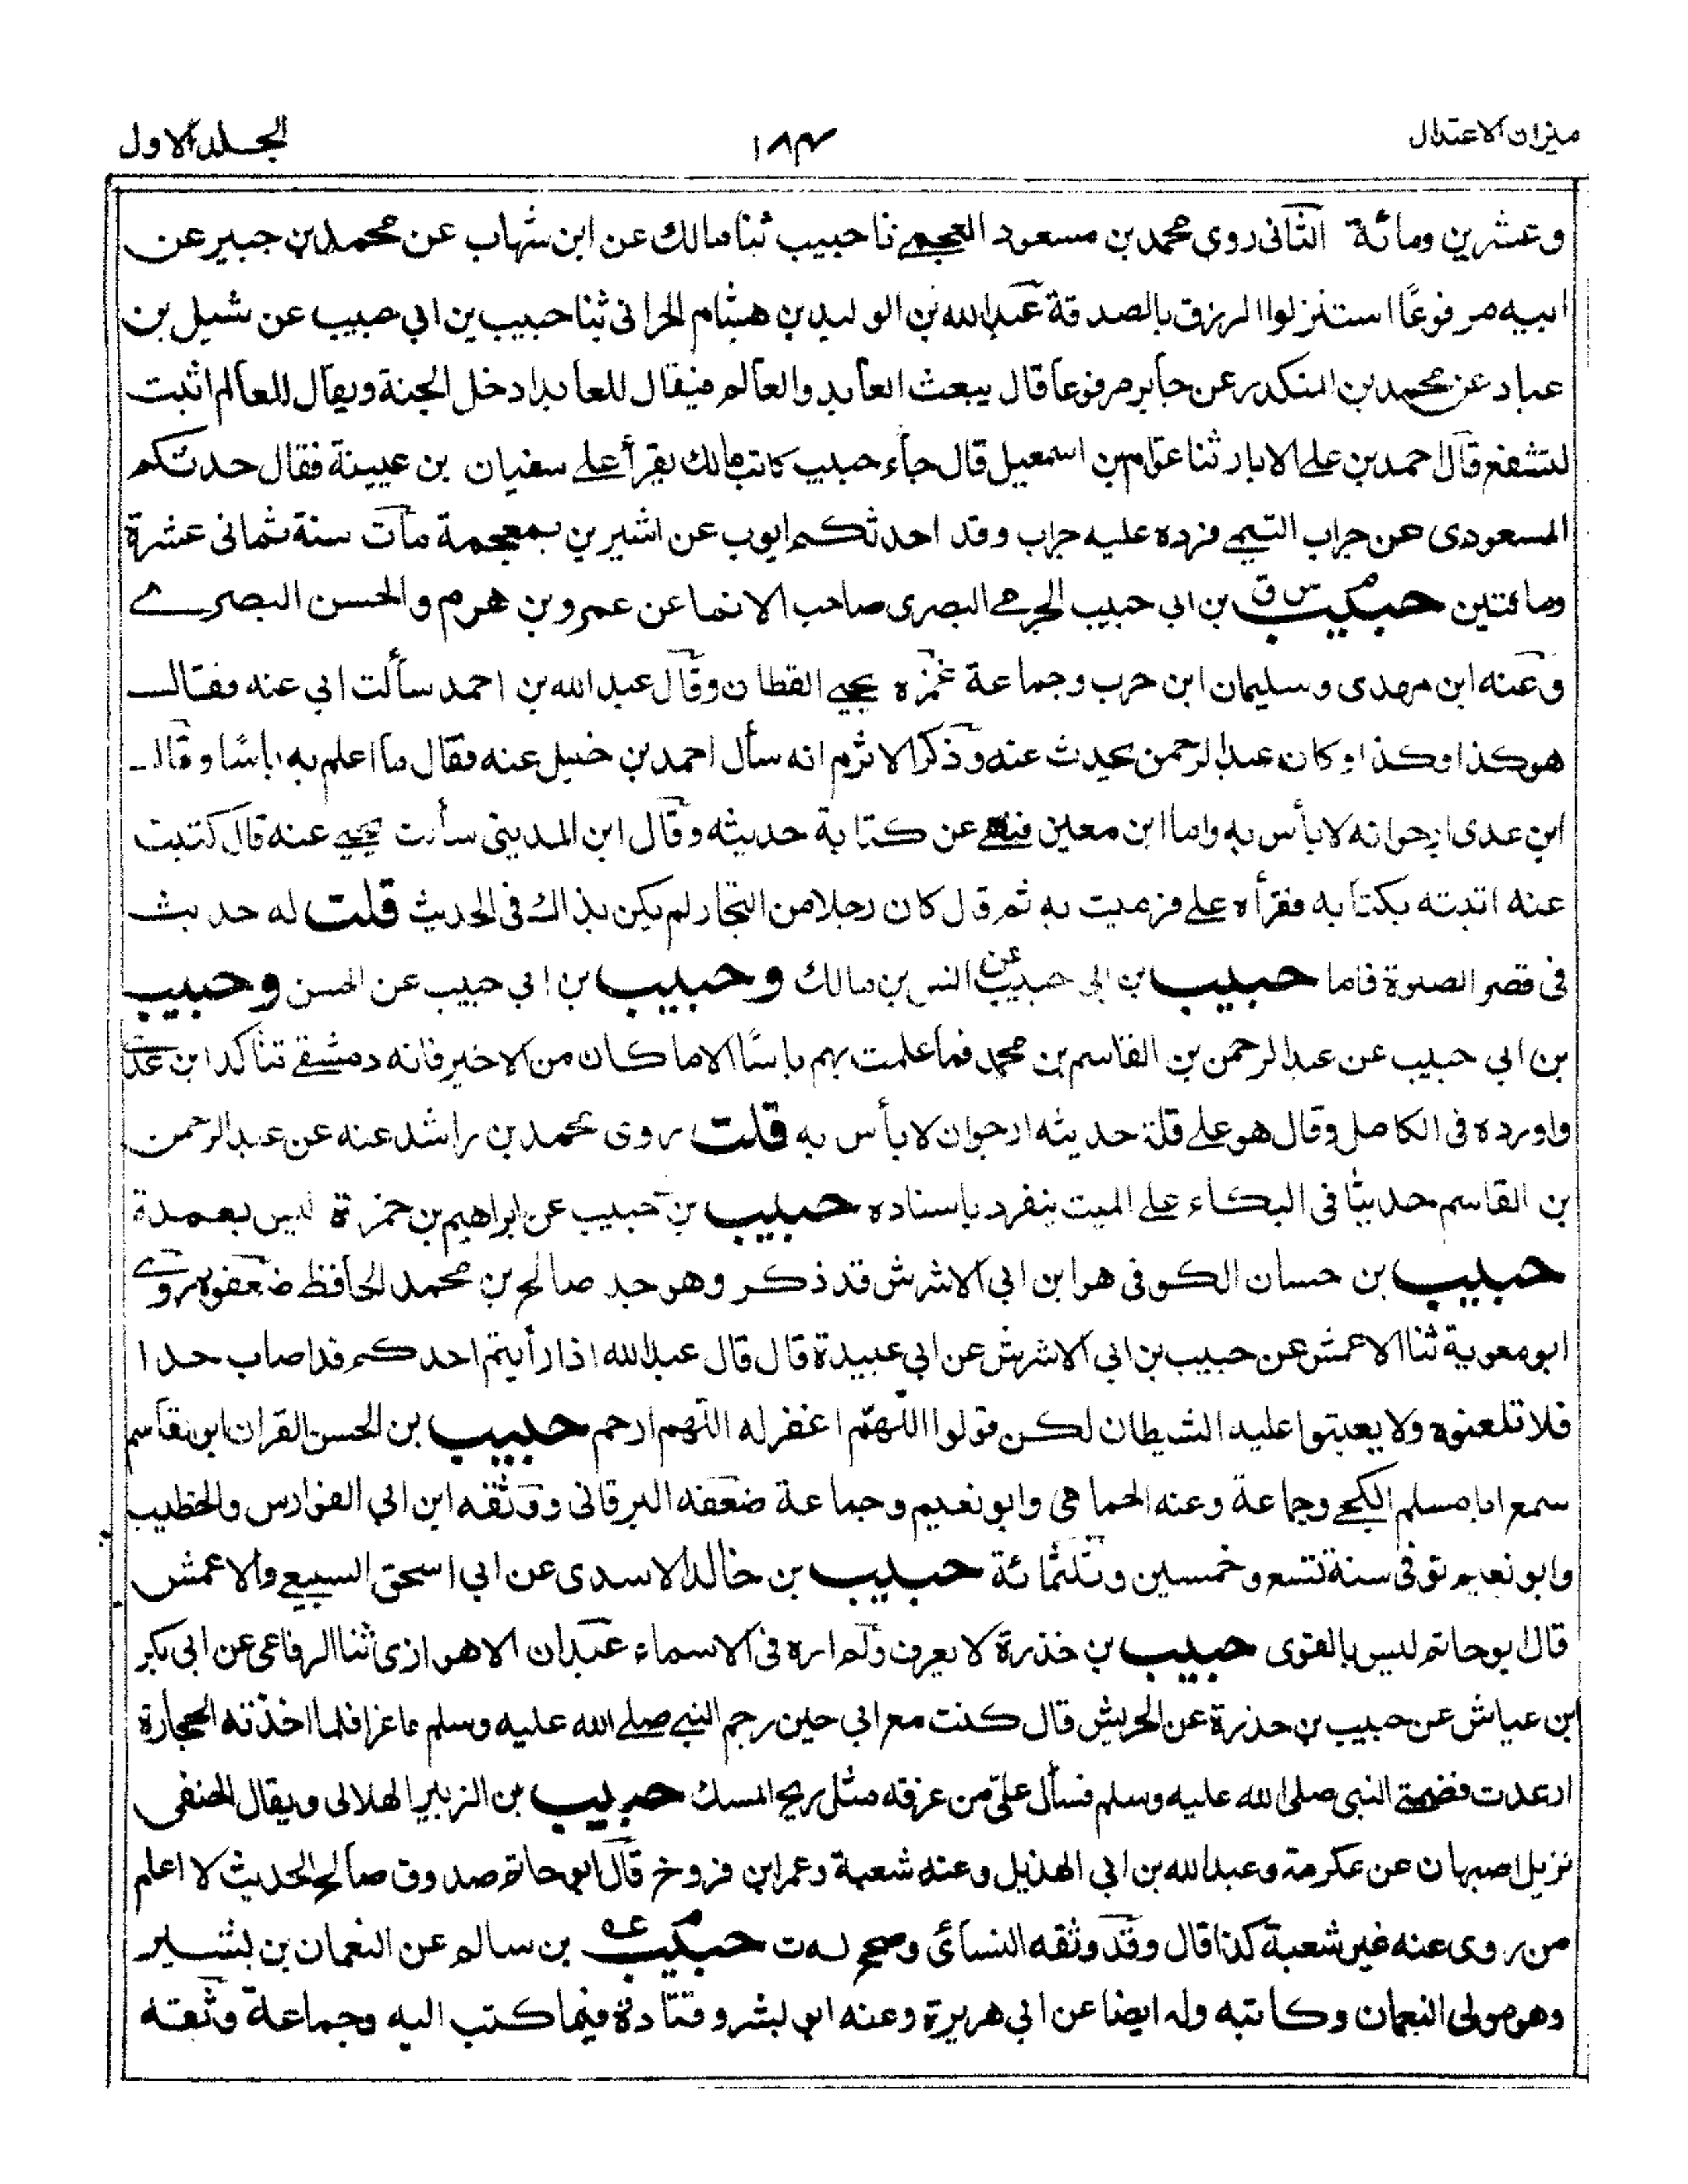 ميزان الاعتدال
١٨٣
الجلد الاول
وعشرين ومائة الثانى روى محمد بن مسعود العجمى نا حبيب ثنا مالك عن ابن شهاب عن محمد بن جبير عن
ابيه مرفوعًا استنزلوا الرزق بالصدقة عبد الله بن الوليد بن هشام الحرانى ثنا حبيب بن ابي حبيب عن شبل بن
عباد عن محمد بن المنكدر عن جابر مرفوعا قال يبعث العابد والعالم فيقال للعابد ادخل الجنة ويقال للعالم اثبت
لتشفع قال احمد بن على الابار ثنا عوام بن اسمعيل قال جاء حبيب كاتب مالك يقرأ على سفيان بن عيينة فقال حدثكم
المسعودى عن جراب التيمى فرده عليه جراب وقد احدثكم ايوب عن اشيرين بمعجمة مات سنة ثمانى عشرة
ومائتين حبيب س ق بن ابي حبيب الجرمى البصرى صاحب الانما عن عمرو بن هرم والحسن البصرى
وعنه ابن مهدى وسليمان ابن حرب وجماعة غمزه يحيى القطان وقال عبد الله بن احمد سألت ابي عنه فقال
هو كذا وكذا وكان عبد الرحمن يحدث عنه وذكر الاثرم انه سأل احمد بن حنبل عنه فقال ما اعلم به باسًا وقال
ابن عدى ارجو انه لا بأس به واما ابن معين فنهى عن كتابة حديثه وقال ابن المدينى سألت يحيى عنه قال كتبت
عنه اتيته بكتابه فقرأه على فرميت به ثم قال كان رجلا من التجار لم يكن بذاك فى الحديث قلت له حديث
فى قصر الصلوة فاما حبيب بن ابى حبيب عن انس بن مالك وحبيب بن ابي حبيب عن الحسن وحبيب
بن ابي حبيب عن عبد الرحمن بن القاسم بن محمد فما علمت بهم باسًا الا ما كان من الاخير فانه دمشقى تناكد ابن عدى
واورده فى الكامل وقال هو على قلة حديثه ارجوان لا بأس به قلت روى محمد بن راشد عنه عن عبد الرحمن
بن القاسم حديثا فى البكاء على الميت ينفرد باسناده حبيب بن حبيب عن ابراهيم بن حمزة ليس بعمدة
حبيب بن حسان الكوفى هو ابن ابي الاشرش قد ذكر وهو جد صالح بن محمد الحافظ ضعفوه روى
ابو معوية ثنا الاعمش عن حبيب بن ابي الاشرش عن ابي عبيدة قال قال عبد الله اذا رأيتم احدكم قد اصاب حدا
فلا تلعنوه ولا يعينوا عليه الشيطان لكن قولوا اللهم اغفر له اللهم ارحم حبيب بن الحسن القزاز ابو القاسم
سمع ابا مسلم الكجى وجماعة وعنه الحمامى وابو نعيم وجماعة ضعفه البرقانى ووثقه ابن ابي الفوارس والخطيب
وابو نعيم توفى سنة تسع وخمسين وثلثمائة حبيب بن خالد الاسدى عن ابي اسحق السبيعى والاعمش
قال ابو حاتم ليس بالقوى حبيب بن خذرة لا يعرف ولم اره فى الاسماء عبدان الاهوازى ثنا الرفاعى عن ابى بكر
ابن عياش عن حبيب بن خذرة عن الحريش قال كنت مع ابي حين رجم النبى صلى الله عليه وسلم ماعزا فلما اخذته الحجارة
ارعدت فضمنى النبى صلى الله عليه وسلم فسأل علىّ من عرقه مثل ريح المسك حبيب بن الزبير الهلالى ويقال الحنفى
نزيل اصبهان عن عكرمة وعبد الله بن ابي الهذيل وعنه شعبة وعمر ابن فروخ قال ابو حاتم صدوق صالح الحديث لا اعلم
من روى عنه غير شعبة كذا قال وقد وثقه النسائى وصحح له ت حبيب عه بن سالم عن النعمان بن بشير
وهو مولى النعمان وكاتبه وله ايضا عن ابي هريرة وعنه ابو بشر وقتادة فيما كتب اليه وجماعة وثقه